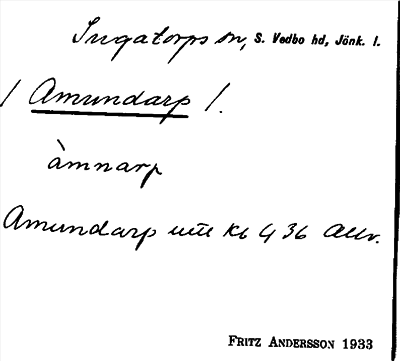 Ingatorps sn, S. Vedbo hd, Jönk. l.
/ Amundarp /.
àmnarp
Amundarp
FRITZ ANDERSSON 1933